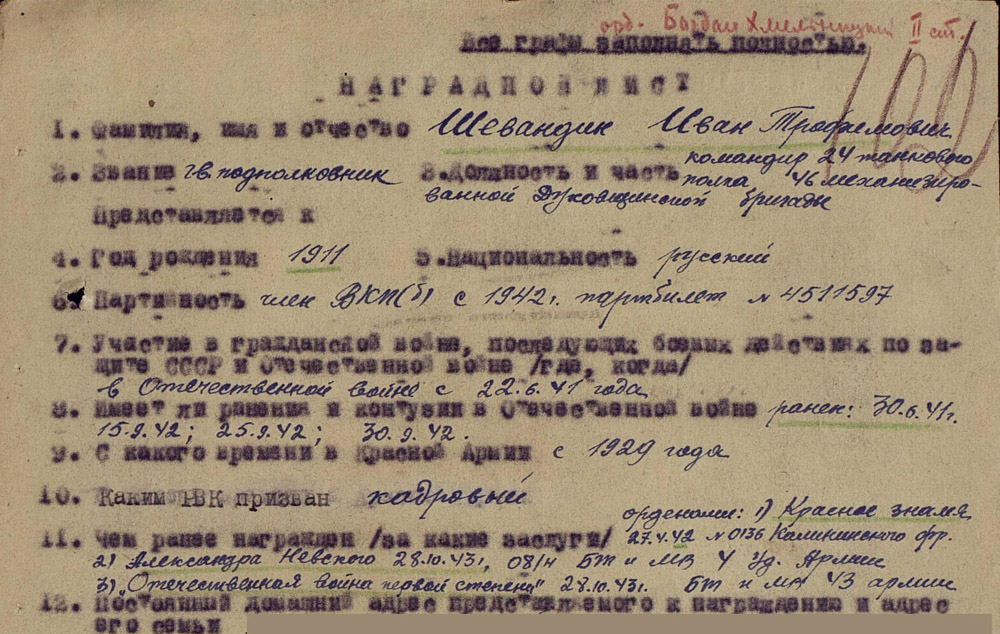 орд. Богдан Хмельницкий II ст.
Все графы заполнять полностью.
НАГРАДНОЙ ЛИСТ
1. Фамилия, имя и отчество Шевандин Иван Трофимович
2. Звание гв подполковник 3. Должность и часть командир 24 танкового
полка, 46 механизиро-
ванной Духовщинской бригады
Представляется к
4. Год рождения 1911 5. Национальность русский
6. Партийность член ВКП(б) с 1942 г. партбилет № 4511597
7. Участие в гражданской войне, последующих боевых действиях по за-
щите СССР и Отечественной войне /где, когда/
в Отечественной войне с 22.6.41 года
8. Имеет ли ранения и контузии в Отечественной войне ранен: 30.6.41г.
15.9.42; 25.9.42; 30.9.42.
9. С какого времени в Красной Армии с 1929 года
10. Каким РВК призван кадровый
орденами: 1) Красное знамя
11. Чем ранее награжден /за какие заслуги/ 27.4.42 №0136 Калининского фр.
2) Александра Невского 28.10.43г., 081/н БТ и МВ 4 Уд. Армии
3) "Отечественная война первой степени" 28.10.43г. БТ и МВ 43 армии
12. Постоянный домашний адрес представляемого к награждению и адрес
его семьи